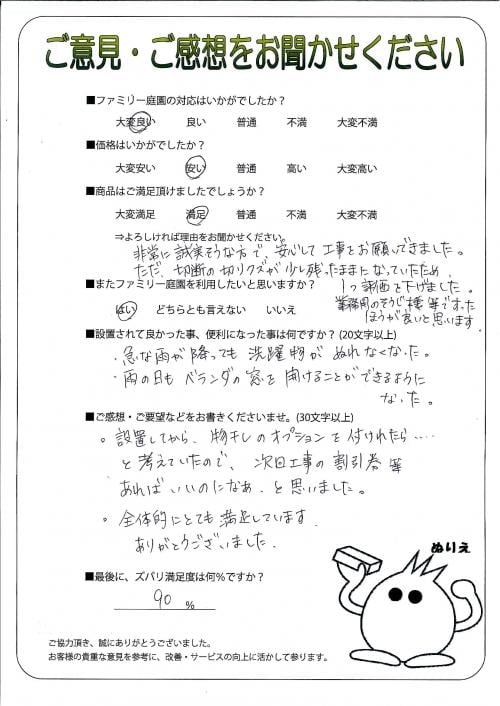 ご意見・ご感想をお聞かせください
■ファミリー庭園の対応はいかがでしたか?
大変良い 良い 普通 不満 大変不満
■価格はいかがでしたか?
大変安い 安い 普通 高い 大変高い
■商品はご満足頂けましたでしょうか?
大変満足 満足 普通 不満 大変不満
⇒よろしければ理由をお聞かせください。
非常に誠実そうな方で、安心して工事をお願いできました。
ただ、切断の切りクズが少し残ったままとなっていたため、
1つ評価を下げました。
業務用のそうじ機等で すった
ほうが良いと思います
■またファミリー庭園を利用したいと思いますか?
はい どちらとも言えない いいえ
■設置されて良かった事、便利になった事は何ですか?(20文字以上)
・急な雨が降っても洗濯物がぬれなくなった。
・雨の日もベランダの窓を開けることができるように
なった。
■ご感想・ご要望などをお書きくださいませ。(30文字以上)
。設置してから、物干しのオプションを付けれたら‥‥
と考えていたので、次回工事の割引券等
あればいいのになあ、と思いました。
。全体的にとても満足しています。
ありがとうございました。
■最後に、ズバリ満足度は何%ですか?
90 %
ぬりえ
ご協力頂き、誠にありがとうございました。
お客様の貴重な意見を参考に、改善・サービスの向上に活かして参ります。